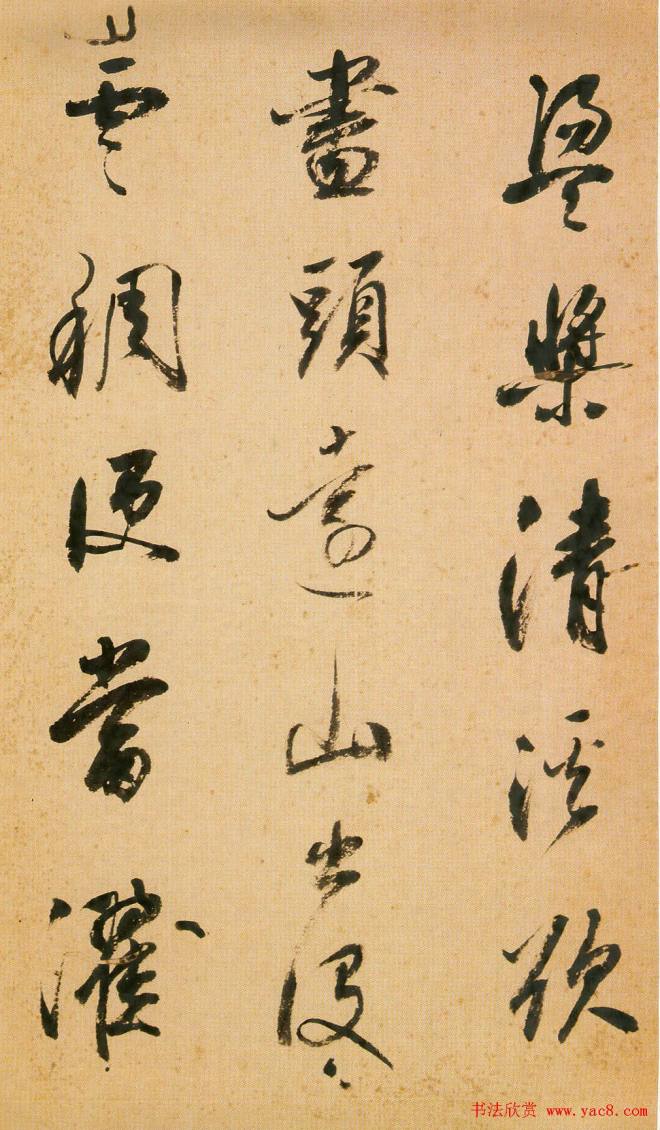 盪槳清溪欲
盡頭遠山出沒
雲稠便當濯
书法欣赏 www.yac8.com